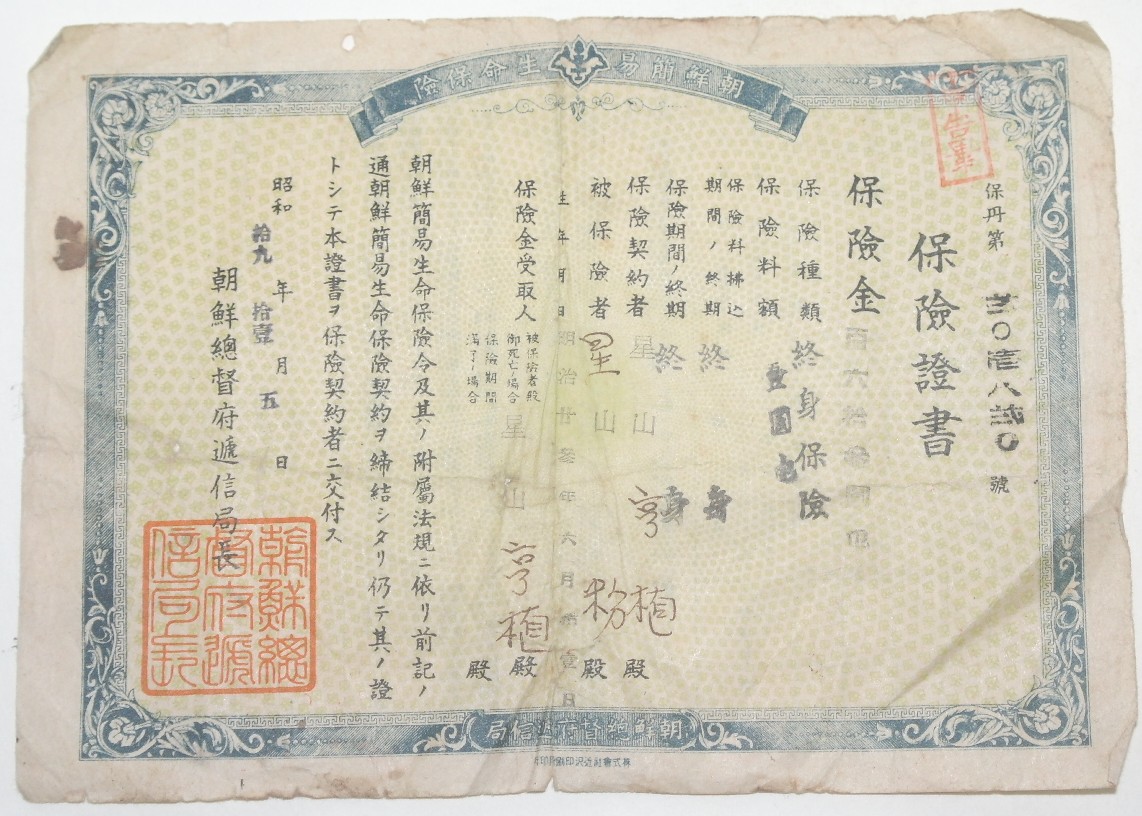 朝鮮簡易生命保險
保丹第
號
保險證書
保險金
保險種類 終身保險
保險料額 壹圓
保險料拂込期間ノ終期 終身
保險期間ノ終期 終身
保險契約者 星山亨植 殿
被保險者 星山粉 殿
生年月日 明治廿參年六月 壹日
保險金受取人
被保險者殿御死亡ノ場合 星山亨植 殿
保險期間滿了ノ場合 殿
朝鮮簡易生命保險令及其ノ附屬法規ニ依リ前記ノ
通朝鮮簡易生命保險契約ヲ締結シタリ仍テ其ノ證
トシテ本證書ヲ保險契約者ニ交付ス
昭和拾九年拾壹月五日
朝鮮總督府遞信局長
朝鮮總督府遞信局長
朝鮮總督府遞信局